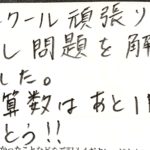 クール頑張り
し問題を解
した。
算数はあと1
とう!!